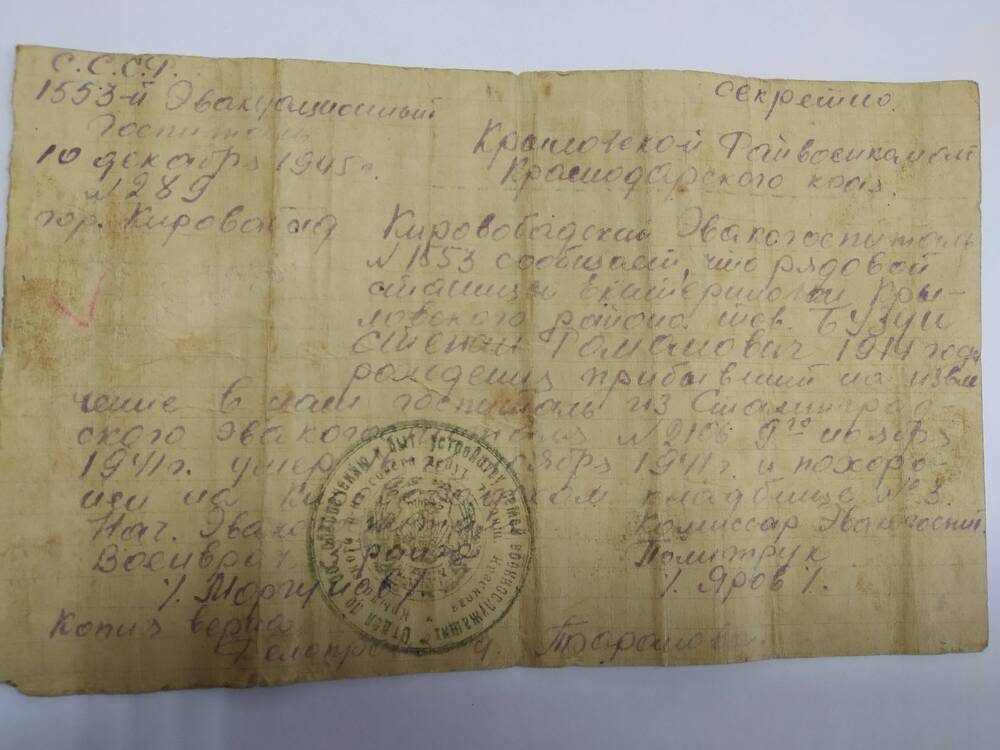 С.С.С.Р.
1553-й Эвакуационный
Госпиталь
10 декабря 1945г.
№289
гор. Кировабад
Секретно.
Крыловской Райвоенкомат
Краснодарского края.
Кировобадский Эвакогоспиталь
№1553 сообщает, что рядовой
станицы Екатериновки Кры-
ловского района тов. Бузун
Степан Романович 1914 года
рождения прибывший на излe
чение в наш госпиталь из Сталинград
ского Эвакогоспиталя №2106 9го ноября
1941г. умер ноября 1941г. и похоро-
нен на кладбище №3.
Нач. Эвако
Военврач ранга
/. Маргулов/
Комиссар Эвакгоспит.
Политрук
/. Яров /.
Копия верна
Делопр
Отдел по гособеспечению и быт. устройству семей военнослужащих